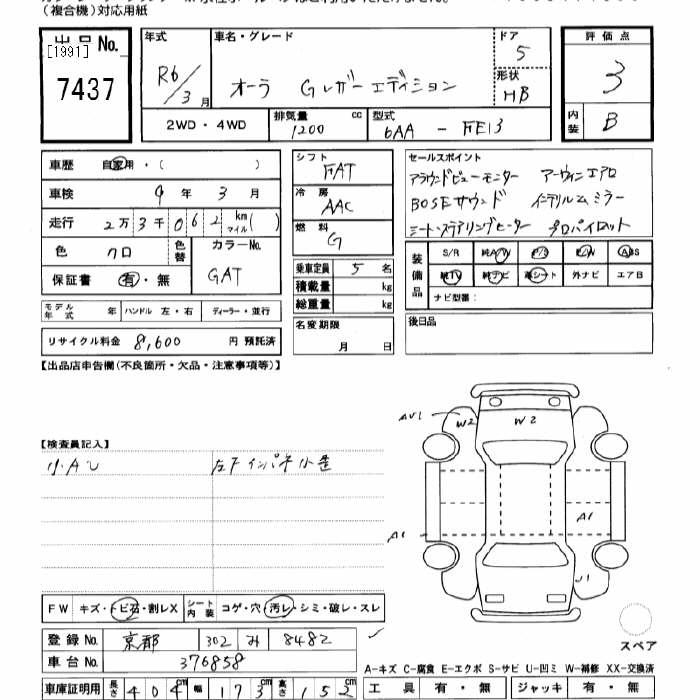 (複合機)対応用紙
出品No.
[1991]
7437
年式 R6/3月
車名・グレード
オーラ Gレザーエディション
ドア 5
形状 HB
評価点 3
内装 B
2WD・4WD
排気量 1200 cc
型式 6AA - FE13
車歴 自家用・( )
車検 9年 3月
走行 2万3千062 km マイル( )
色 クロ
色替
カラーNo. GAT
保証書 有・無
シフト FAT
冷房 AAC
燃料 G
乗車定員 5名
積載量 kg
総重量 kg
名変期限 月 日
セールスポイント
アラウンドビューモニター
BOSEサウンド インテリルムミラー
シート・ステアリングヒーター プロパイロット
装備品
S/R 純A/W P/S P/W ABS
純TV 純ナビ 革シート 外ナビ エアB
ナビ型番:
後日品
モデル年式 年 ハンドル 左・右 ディーラー・並行
リサイクル料金 8,600 円 預託済
【出品店申告欄(不良箇所・欠品・注意事項等)】
【検査員記入】
小AU 左Fインパネ小キズ
AU1 W2 W2
A1 A1
U1
FW キズ・トビ石・割レX シート内装 コゲ・穴・汚レ・シミ・破レ・スレ
登録No. 京都 302 み 8482
車台No. 376858
スペア
A-キズ C-腐食 E-エクボ S-サビ U-凹ミ W-補修 XX-交換済
車庫証明用 長さ 404cm 幅 173cm 高さ 152cm
工具 有・無 ジャッキ 有・無